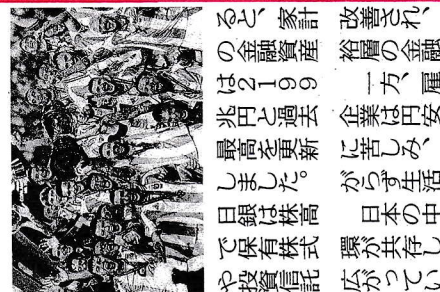 ると、家計
の金融資産
は2199
兆円と過去
最高を更新
しました。
日銀は株高
で保有株式
や投資信託
改善され、
裕層の金融
一方、雇
企業は円安
に苦しみ、
がらず生活
日本の中
環が共存し
広がってい